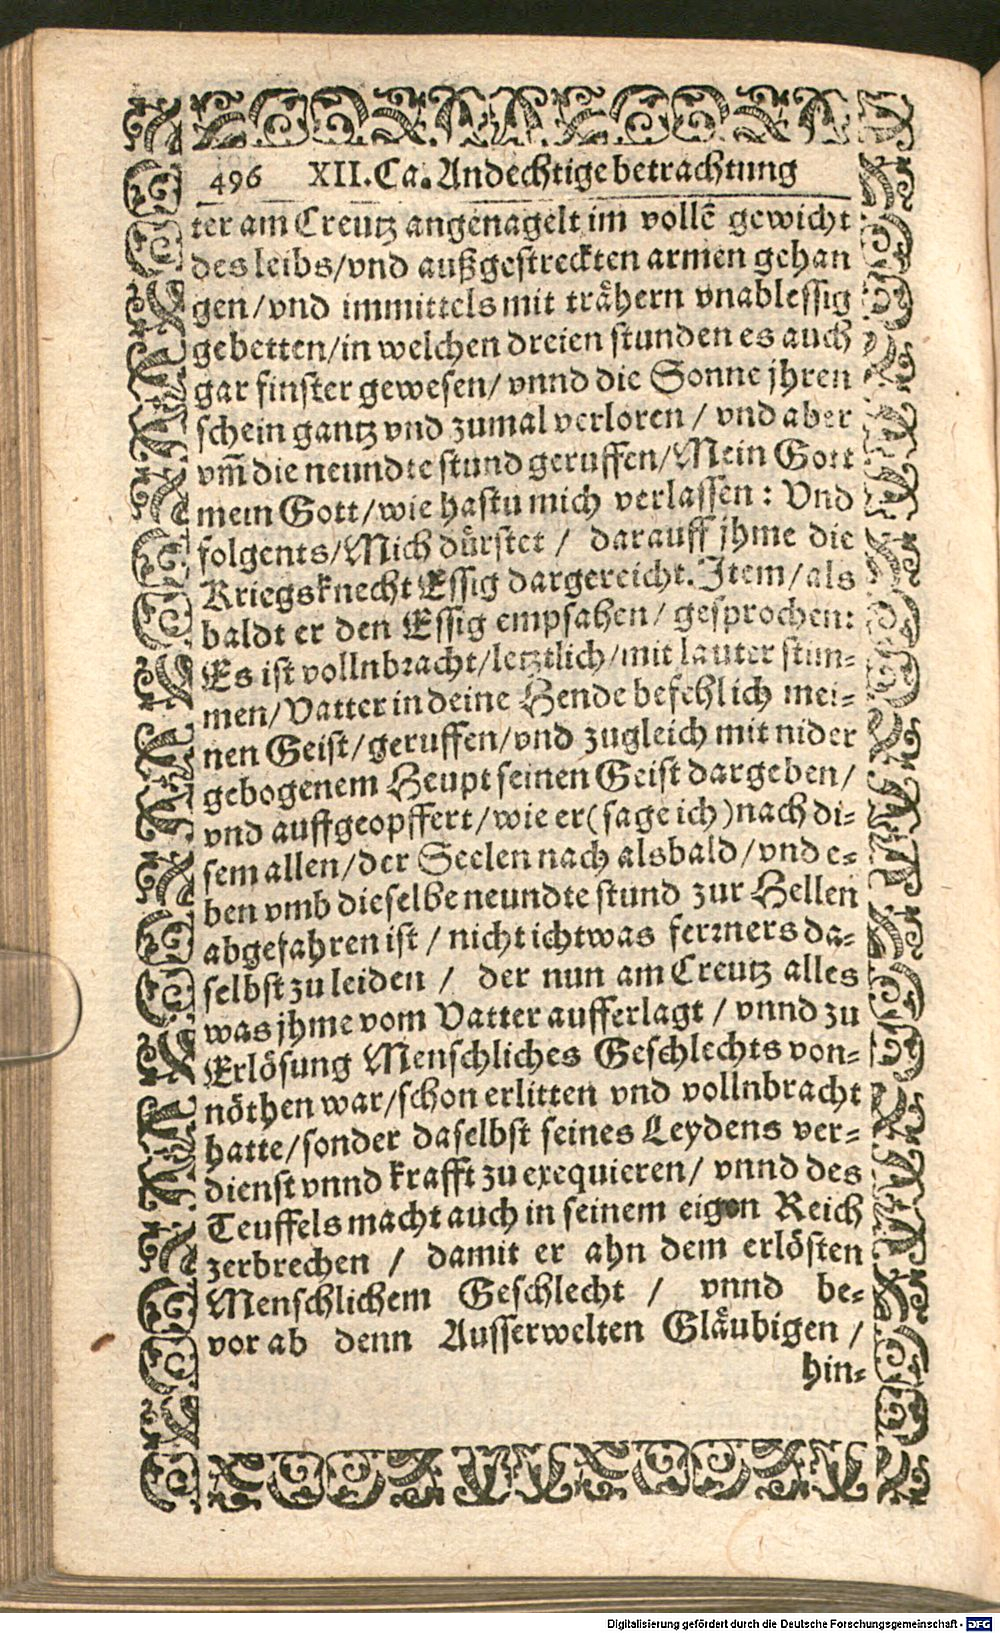 496 XII. Ca. Andechtige betrachtung
ter am Creutz angenagelt im vollẽ gewicht
des leibs/vnd außgestreckten armen gehan
gen/vnd immittels mit trähern vnablessig
gebetten/in welchen dreien stunden es auch
gar finster gewesen/vnnd die Sonne jhren
schein gantz vnd zumal verloren/vnd aber
vm̃ die neundte stund geruffen/Mein Gott
mein Gott/wie hastu mich verlassen: Vnd
folgents/Mich dürstet/darauff jhme die
Kriegsknecht Essig dargereicht. Item/als
baldt er den Essig empfahen/gesprochen:
Es ist vollnbracht/letztlich/mit lauter stim-
men/Vatter in deine Hende befehlich mei-
nen Geist/geruffen/vnd zugleich mit nider
gebogenem Heupt seinen Geist dargeben/
vnd auffgeopffert/wie er(sage ich)nach di-
sem allen/der Seelen nach alsbald/vnd e-
ben vmb dieselbe neundte stund zur Hellen
abgefahren ist/nicht ichtwas fermers da-
selbst zu leiden/der nun am Creutz alles
was jhme vom Vatter aufferlagt/vnnd zu
Erlösung Menschliches Geschlechts von-
nöthen war/schon erlitten vnd vollnbracht
hatte/sonder daselbst seines Leydens ver-
dienst vnnd krafft zu exequieren/vnnd des
Teuffels macht auch in seinem eigen Reich
zerbrechen/damit er ahn dem erlösten
Menschlichem Geschlecht/vnnd be-
vor ab denn Ausserwelten Gläubigen/
hin-
Digitalisierung gefördert durch die Deutsche Forschungsgemeinschaft - DFG